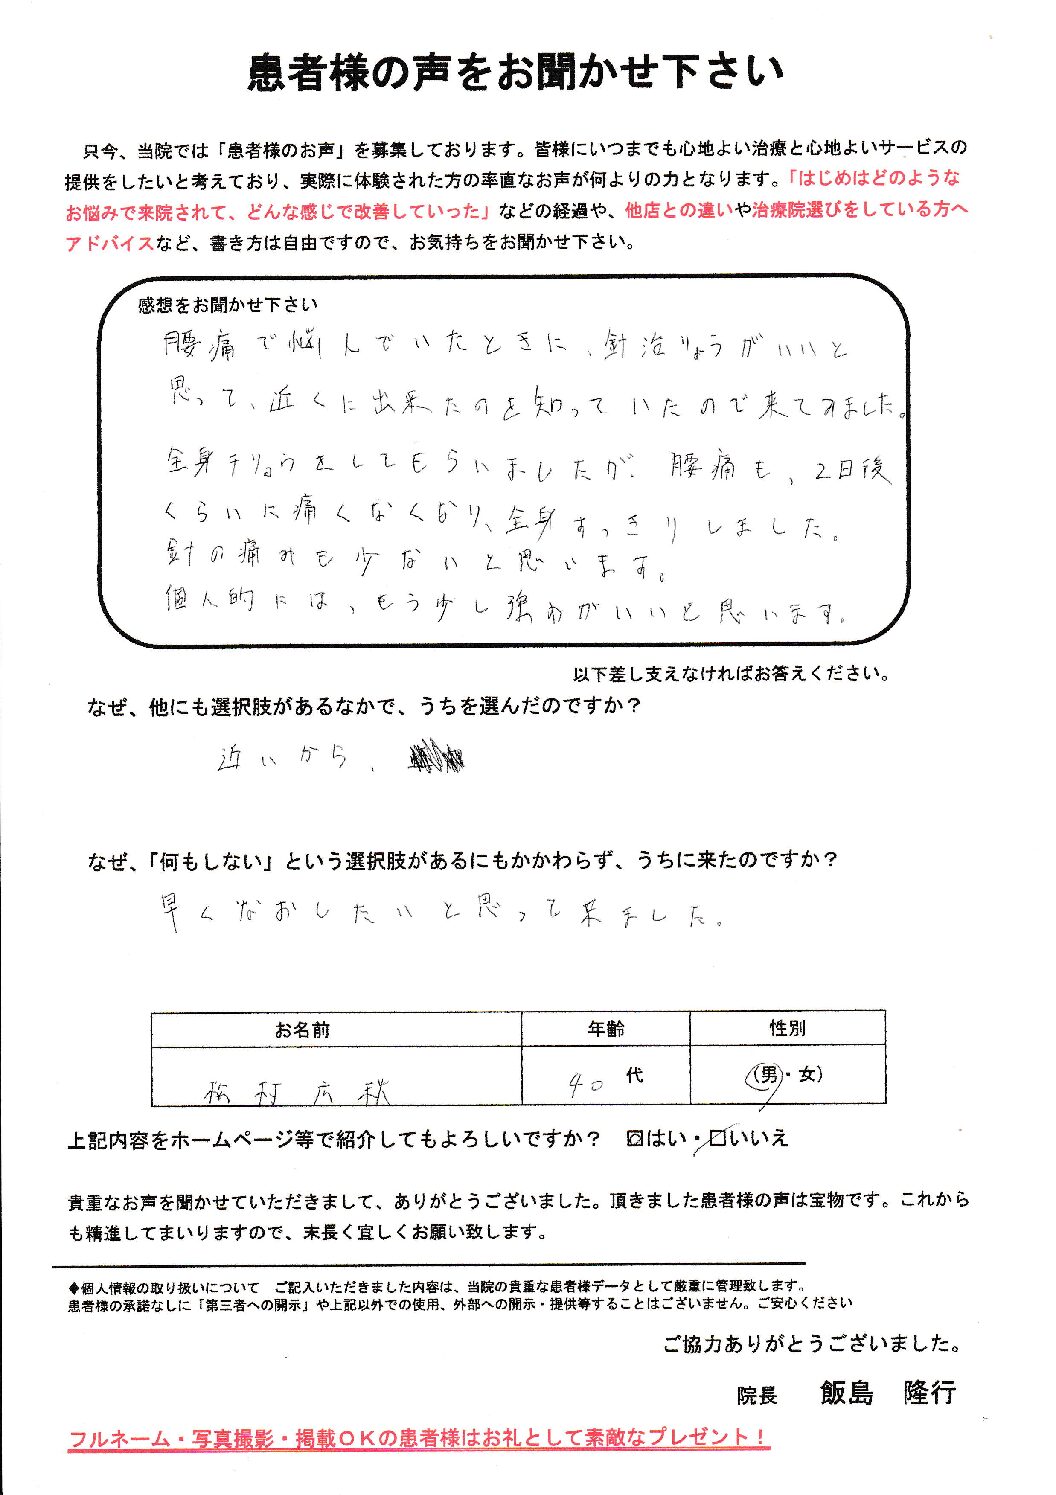 患者様の声をお聞かせ下さい
只今、当院では「患者様のお声」を募集しております。皆様にいつまでも心地よい治療と心地よいサービスの
提供をしたいと考えており、実際に体験された方の率直なお声が何よりの力となります。「はじめはどのような
お悩みで来院されて、どんな感じで改善していった」などの経過や、他店との違いや治療院選びをしている方へ
アドバイスなど、書き方は自由ですので、お気持ちをお聞かせ下さい。
感想をお聞かせ下さい
腰痛で悩んでいたときに、針治りょうがいいと
思って、近くに出来たのを知っていたので来てみました。
全身チリょうをしてもらいましたが、腰痛も、2日後
くらいに痛くなくなり、全身すっきりしました。
針の痛みも少ないと思います。
個人的には、もう少し強めがいいと思います。
以下差し支えなければお答えください。
なぜ、他にも選択肢があるなかで、うちを選んだのですか？
近いから、
なぜ、「何もしない」という選択肢があるにもかかわらず、うちに来たのですか？
早くなおしたいと思って来ました。
お名前 年齢 性別
村広 40代 (男・女)
上記内容をホームページ等で紹介してもよろしいですか？ ☒はい・☐いいえ
貴重なお声を聞かせていただきまして、ありがとうございました。頂きました患者様の声は宝物です。これから
も精進してまいりますので、末長く宜しくお願い致します。
◆個人情報の取り扱いについて ご記入いただきました内容は、当院の貴重な患者様データとして厳重に管理致します。
患者様の承諾なしに「第三者への開示」や上記以外での使用、外部への開示・提供等することはございません。ご安心ください
ご協力ありがとうございました。
院長 飯島 隆行
フルネーム・写真撮影・掲載ＯＫの患者様はお礼として素敵なプレゼント！